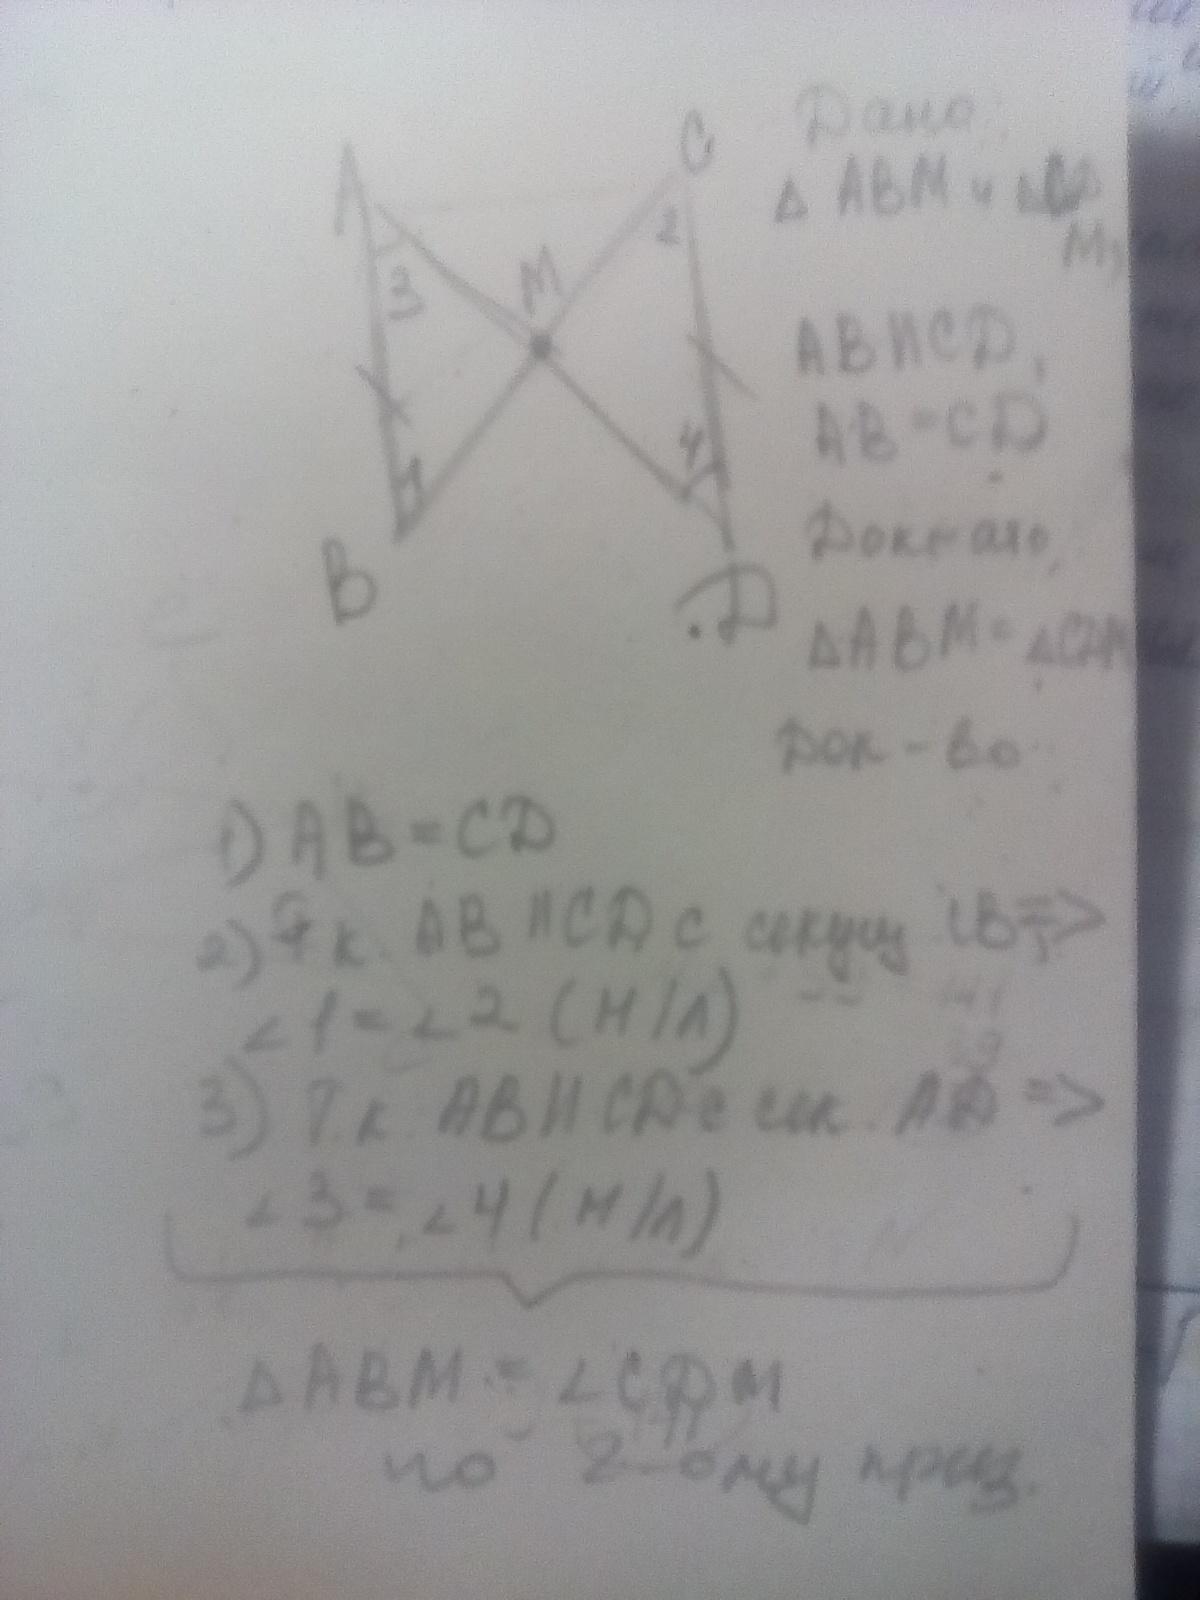 A
C
M
3
2
4
1
B
D
Дано:
△ ABM и △CD
M,
AB II CD,
AB = CD
△ABM = △CDM
Док-во
1) AB = CD
2) Т.к. AB II CD с секущ CB =>
∠1 = ∠2 (Н/Л)
3) Т.к. AB II CD с сек. AD =>
∠3 = ∠4 (Н/Л)
△ABM = ∠CDM
по 2-ому приз.